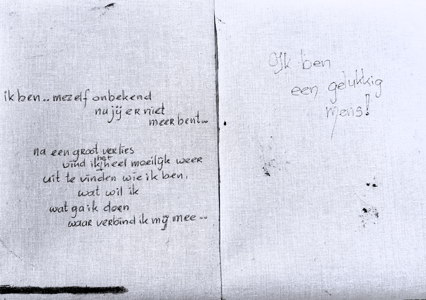 ik ben.. mezelf onbekend
nu jij er niet
meer bent...
na een groot verlies
vind ik het heel moeilijk weer
uit te vinden wie ik ben,
wat wil ik
wat ga ik doen
waar verbind ik mij mee...
Ik ben
een gelukkig
mens!